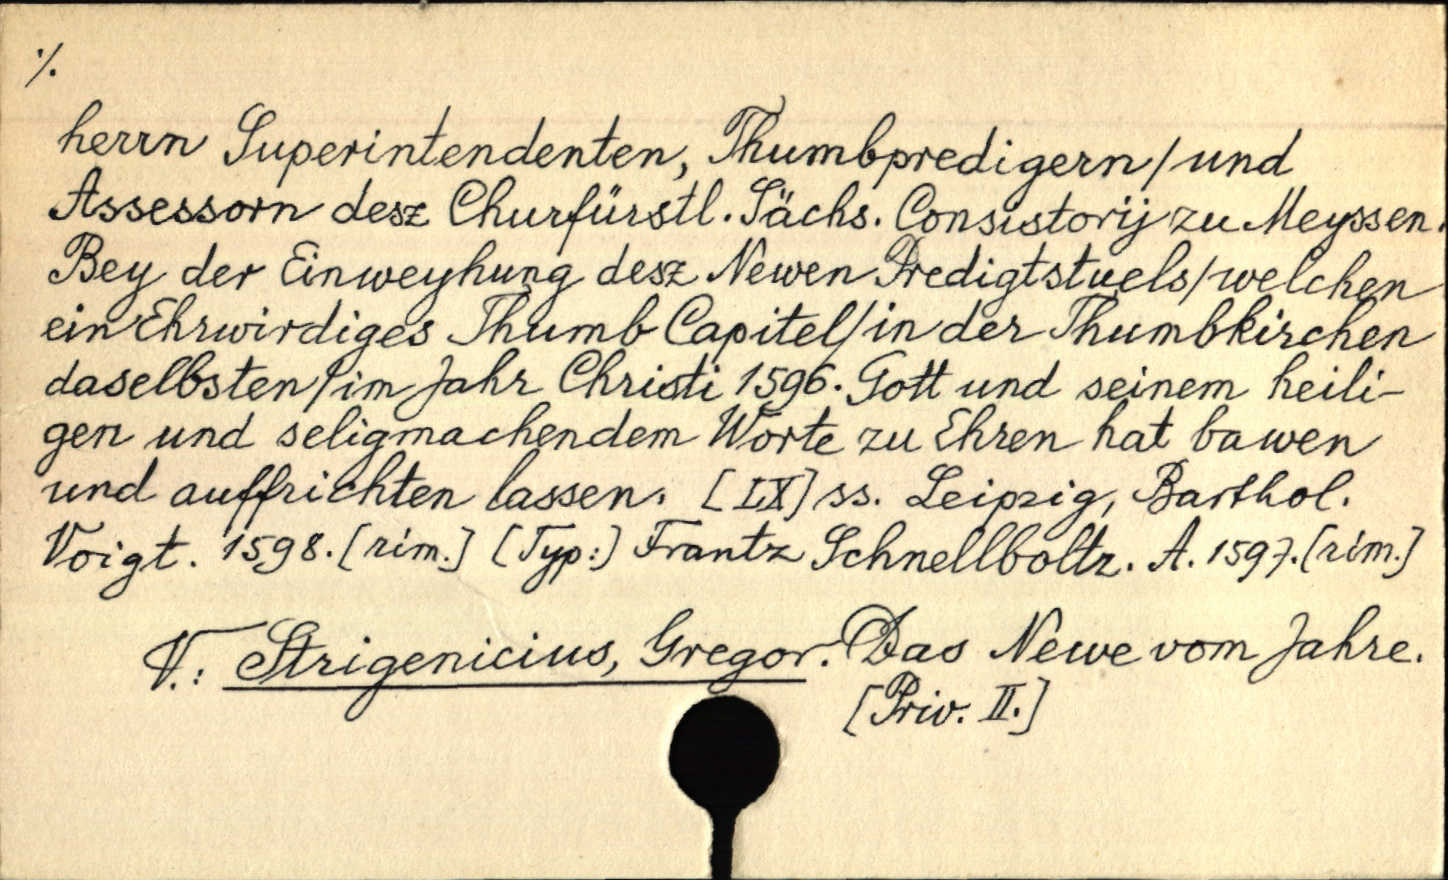 ./.
herrn Superintendenten, Thumbpredigern/und
Assessorn desz Churfürstl. Sächs. Consistorij zu Meyssen.
Bey der Einweyhung desz Newen Predigtstuels/welchen
ein Ehrwirdiges Thumb Capitel/in der Thumbkirchen
daselbsten/im Jahr Christi 1596. Gott und seinem heili-
gen und seligmachendem Worte zu Ehren hat bawen
und auffrichten lassen. [LX] ss. Leipzig, Barthol.
Voigt. 1598. [rim.] [Typ:] Frantz Schnellboltz. A. 1597. [rim.]
V.: Strigenicius, Gregor. Das Newe vom Jahre.
[Priv. II.]